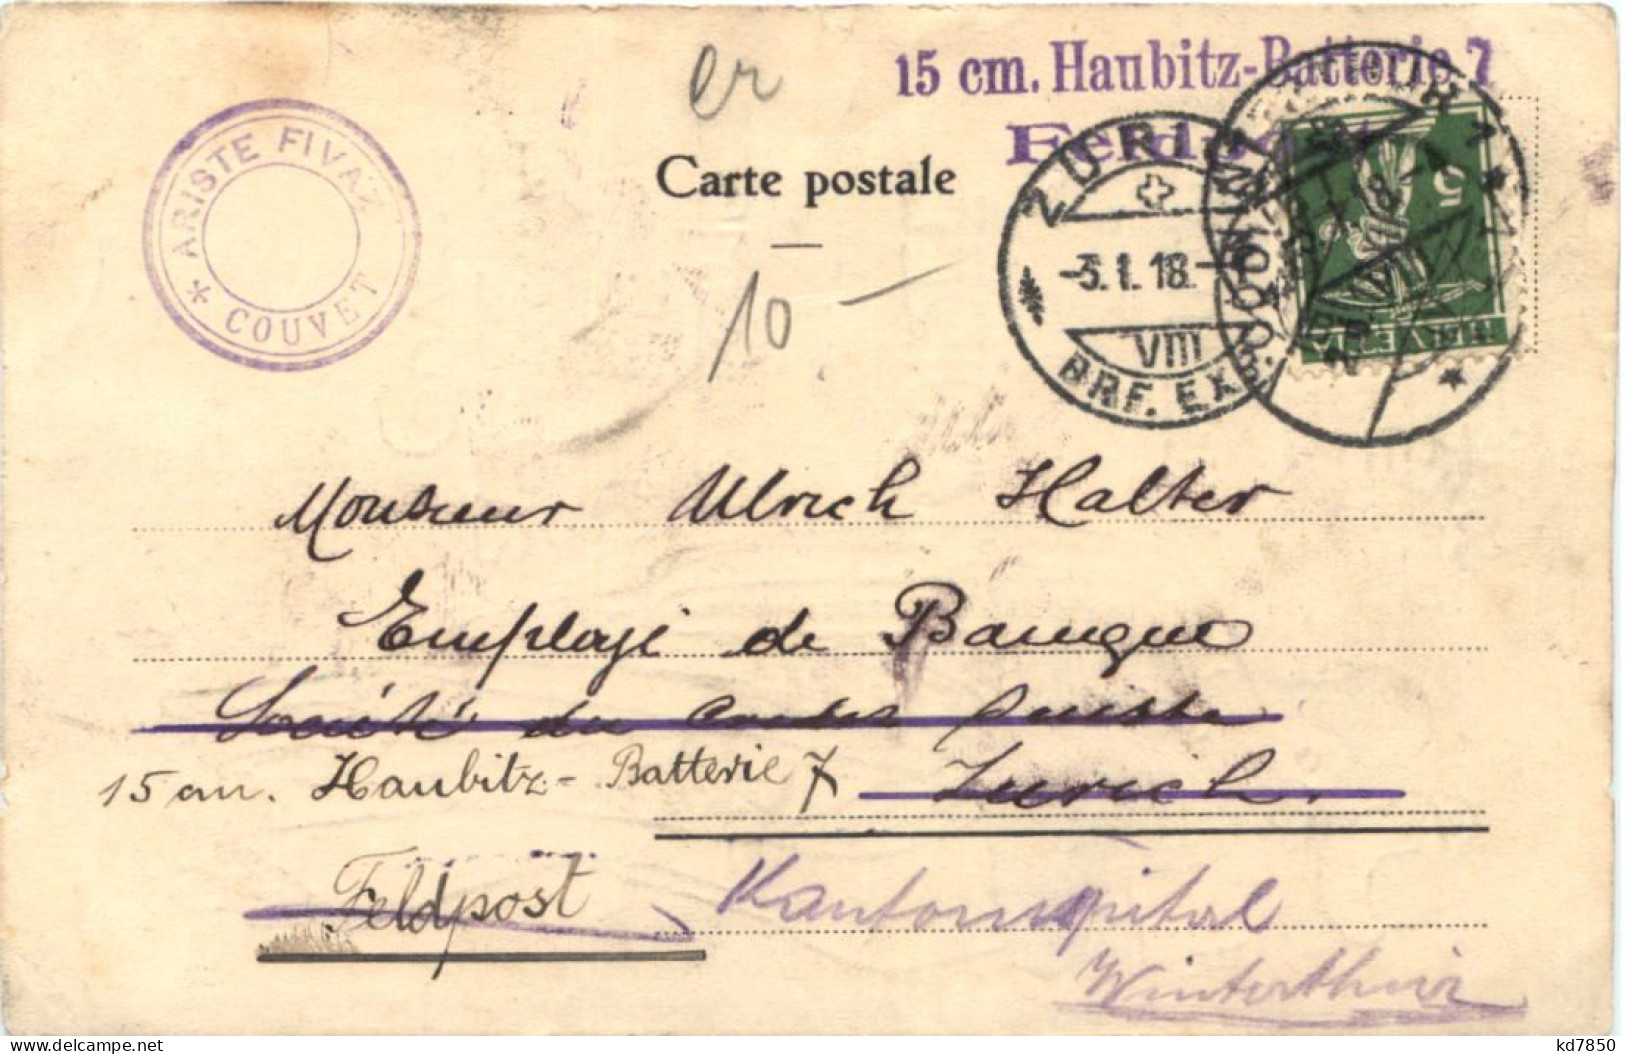 er
15 cm. Haubitz-Batterie 7
Feldpost
ARISTE FIVAZ
* COUVET
Carte postale
10 –
ZÜRICH
-3.1.18.-
VIII
BRF. EXP.
WINTERTHUR
5
HELVETIA
Monsieur Ulrich Halter
Employé de Banque
Société du Crédit Suisse
15 cm. Haubitz-Batterie 7 Zurich.
Feldpost Kantonsspital
Winterthur
kd7850